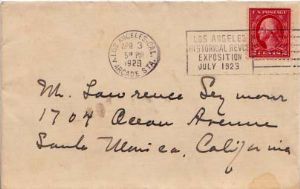 LOS ANGELES, CAL.
APR 3
5 PM
1923
ARCADE STA.
LOS ANGELES
HISTORICAL REVUE
EXPOSITION
JULY 1923
U.S. POSTAGE
Mr. Lawrence Seymour
1704 Ocean Avenue
Santa Monica, California